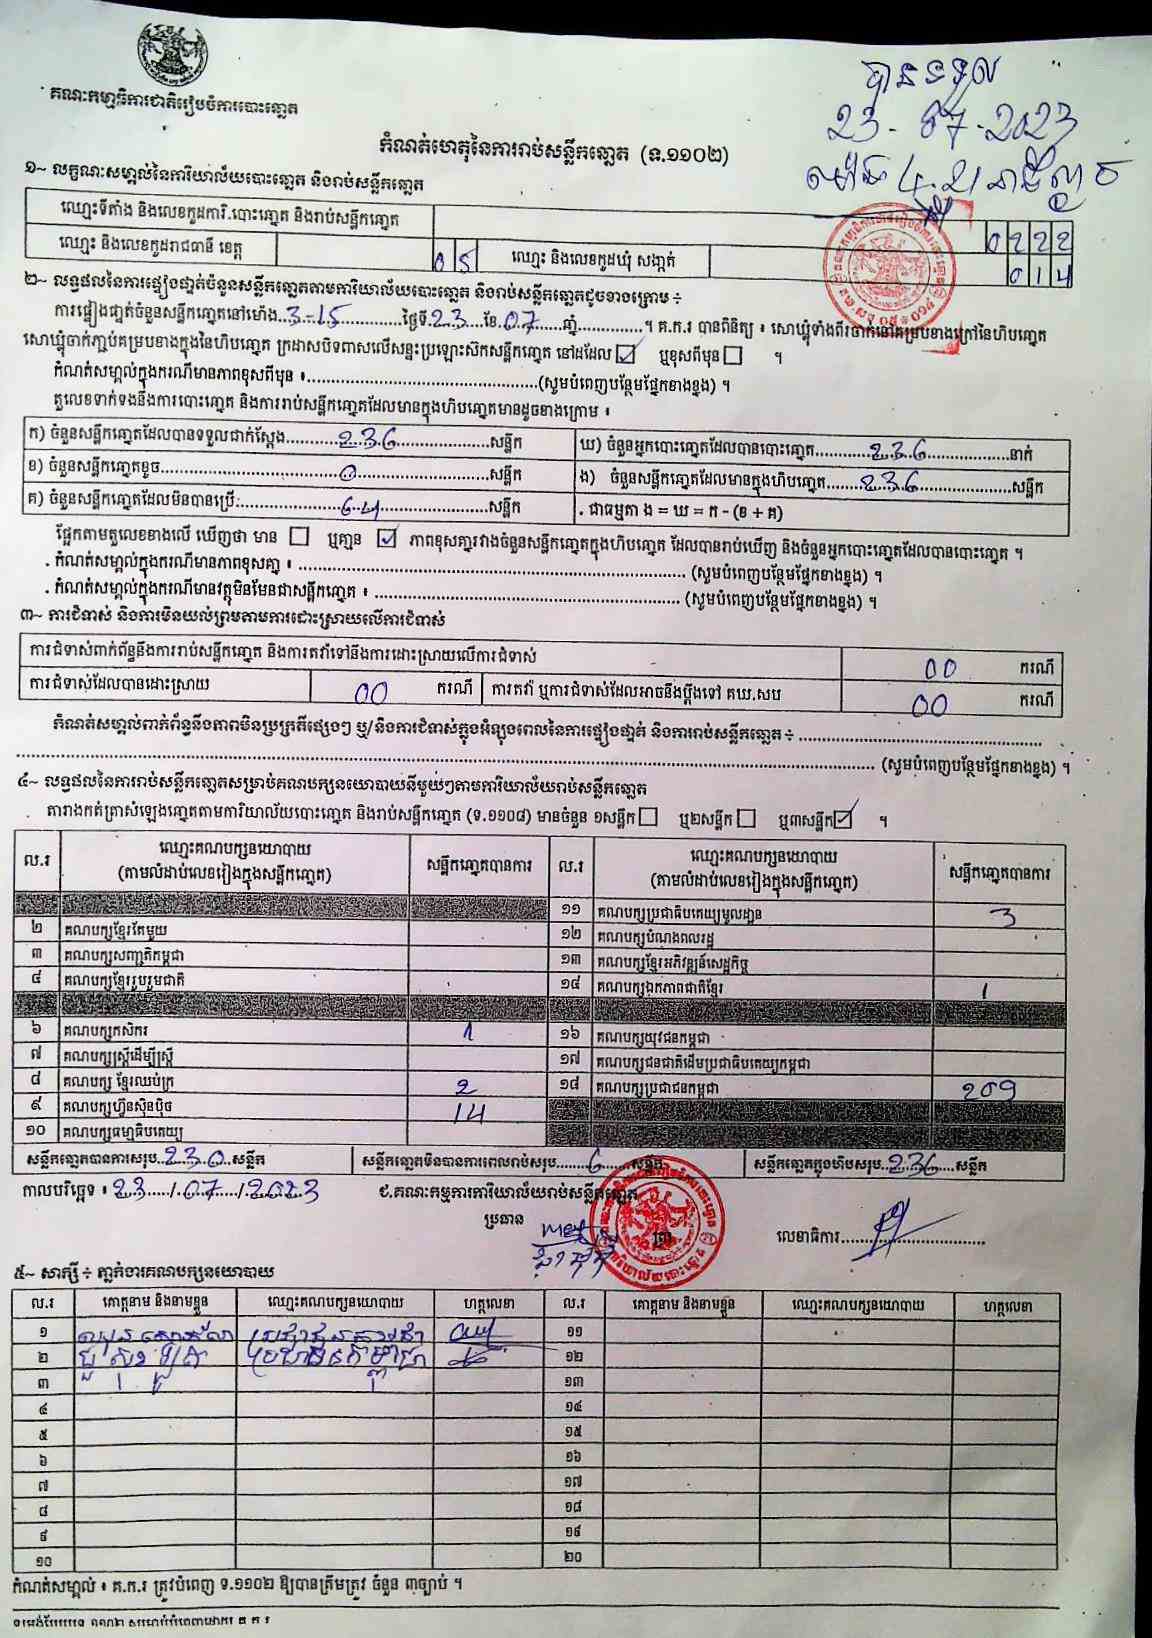 គណៈកម្មាធិការជាតិរៀបចំការបោះឆ្នោត
បានទទួល
23-07-2023
កំណត់ហេតុនៃការរាប់សន្លឹកឆ្នោត (ទ.១១០២)
១~ លក្ខណៈសម្គាល់នៃការិយាល័យបោះឆ្នោត និងរាប់សន្លឹកឆ្នោត
ឈ្មោះទីតាំង និងលេខកូដការិ.បោះឆ្នោត និងរាប់សន្លឹកឆ្នោត 0222
ឈ្មោះ និងលេខកូដរាជធានី ខេត្ត 05 ឈ្មោះ និងលេខកូដឃុំ សង្កាត់ 014
២~ លទ្ធផលនៃការផ្ទៀងផ្ទាត់ចំនួនសន្លឹកឆ្នោតតាមការិយាល័យបោះឆ្នោត និងរាប់សន្លឹកឆ្នោតដូចខាងក្រោម ÷
ការផ្ទៀងផ្ទាត់ចំនួនសន្លឹកឆ្នោតនៅម៉ោង...3-15...ថ្ងៃទី.23...ខែ.07...ឆ្នាំ............។ គ.ក.រ បានពិនិត្យ ៖ សោឃ្លុំទាំងពីរចាក់នៅគម្របខាងក្រៅនៃហិបឆ្នោត
សោឃ្លុំចាក់ភ្ជាប់គម្របខាងក្នុងនៃហិបឆ្នោត ក្រដាសបិទពាសលើសន្ទះប្រឡោះស៊កសន្លឹកឆ្នោត នៅដដែល ☑ ឬខុសពីមុន ☐ ។
កំណត់សម្គាល់ក្នុងករណីមានភាពខុសពីមុន ៖............(សូមបំពេញបន្ថែមផ្នែកខាងខ្នង) ។
តួលេខទាក់ទងនឹងការបោះឆ្នោត និងការរាប់សន្លឹកឆ្នោតដែលមានក្នុងហិបឆ្នោតមានដូចខាងក្រោម ៖
ក) ចំនួនសន្លឹកឆ្នោតដែលបានទទួលជាក់ស្តែង.........236............សន្លឹក ឃ) ចំនួនអ្នកបោះឆ្នោតដែលបានបោះឆ្នោត.........236............នាក់
ខ) ចំនួនសន្លឹកឆ្នោតខូច............0............សន្លឹក ង) ចំនួនសន្លឹកឆ្នោតដែលមានក្នុងហិបឆ្នោត......236............សន្លឹក
គ) ចំនួនសន្លឹកឆ្នោតដែលមិនបានប្រើ:............64............សន្លឹក . ជាធម្មតា ង = ឃ = ក - (ខ + គ)
ផ្អែកតាមតួលេខខាងលើ ឃើញថា មាន ☐ ឬគ្មាន ☑ ភាពខុសគ្នារវាងចំនួនសន្លឹកឆ្នោតក្នុងហិបឆ្នោត ដែលបានរាប់ឃើញ និងចំនួនអ្នកបោះឆ្នោតដែលបានបោះឆ្នោត ។
. កំណត់សម្គាល់ក្នុងករណីមានភាពខុសគ្នា ៖ ............ (សូមបំពេញបន្ថែមផ្នែកខាងខ្នង) ។
. កំណត់សម្គាល់ក្នុងករណីមានវត្ថុមិនមែនជាសន្លឹកឆ្នោត ៖ ............ (សូមបំពេញបន្ថែមផ្នែកខាងខ្នង) ។
៣~ ការជំទាស់ និងការមិនយល់ព្រមតាមការដោះស្រាយលើការជំទាស់
ការជំទាស់ពាក់ព័ន្ធនឹងការរាប់សន្លឹកឆ្នោត និងការតវ៉ាទៅនឹងការដោះស្រាយលើការជំទាស់ 00 ករណី
ការជំទាស់ដែលបានដោះស្រាយ 00 ករណី ការតវ៉ា ឬការជំទាស់ដែលអាចនឹងប្តឹងទៅ គឃ.សប 00 ករណី
កំណត់សម្គាល់ពាក់ព័ន្ធនឹងភាពមិនប្រក្រតីផ្សេងៗ ឬ/និងការជំទាស់ក្នុងអំឡុងពេលនៃការផ្ទៀងផ្ទាត់ និងការរាប់សន្លឹកឆ្នោត ÷ ............
............ (សូមបំពេញបន្ថែមផ្នែកខាងខ្នង) ។
៤~ លទ្ធផលនៃការរាប់សន្លឹកឆ្នោតសម្រាប់គណបក្សនយោបាយនីមួយៗតាមការិយាល័យរាប់សន្លឹកឆ្នោត
តារាងកត់ត្រាសំឡេងឆ្នោតតាមការិយាល័យបោះឆ្នោត និងរាប់សន្លឹកឆ្នោត (ទ.១១០៨) មានចំនួន ១សន្លឹក ☐ ឬ២សន្លឹក ☐ ឬ៣សន្លឹក ☑ ។
ល.រ ឈ្មោះគណបក្សនយោបាយ (តាមលំដាប់លេខរៀងក្នុងសន្លឹកឆ្នោត) សន្លឹកឆ្នោតបានការ ល.រ ឈ្មោះគណបក្សនយោបាយ (តាមលំដាប់លេខរៀងក្នុងសន្លឹកឆ្នោត) សន្លឹកឆ្នោតបានការ
១១ គណបក្សប្រជាធិបតេយ្យមូលដ្ឋាន 3
២ គណបក្សខ្មែរតែមួយ ១២ គណបក្សបំណងពលរដ្ឋ
៣ គណបក្សសញ្ជាតិកម្ពុជា ១៣ គណបក្សខ្មែរអភិវឌ្ឍន៍សេដ្ឋកិច្ច
៤ គណបក្សខ្មែររួបរួមជាតិ ១៤ គណបក្សឯកភាពជាតិខ្មែរ 1
៦ គណបក្សកសិករ 1 ១៦ គណបក្សយុវជនកម្ពុជា
៧ គណបក្សស្ត្រីដើម្បីស្ត្រី ១៧ គណបក្សជនជាតិដើមប្រជាធិបតេយ្យកម្ពុជា
៨ គណបក្ស ខ្មែរឈប់ក្រ 2 ១៨ គណបក្សប្រជាជនកម្ពុជា 209
៩ គណបក្សហ៊្វុនស៊ិនប៉ិច 14
១០ គណបក្សធម្មាធិបតេយ្យ
សន្លឹកឆ្នោតបានការសរុប..230.សន្លឹក សន្លឹកឆ្នោតមិនបានការពេលរាប់សរុប........6......សន្លឹក សន្លឹកឆ្នោតក្នុងហិបសរុប..236....សន្លឹក
កាលបរិច្ឆេទ ៖ 23...../.07...../.2023 ជ.គណៈកម្មការការិយាល័យរាប់សន្លឹកឆ្នោត
ប្រធាន លេខាធិការ............
៥~ សាក្សី ÷ ភ្នាក់ងារគណបក្សនយោបាយ
ល.រ គោត្តនាម និងនាមខ្លួន ឈ្មោះគណបក្សនយោបាយ ហត្ថលេខា ល.រ គោត្តនាម និងនាមខ្លួន ឈ្មោះគណបក្សនយោបាយ ហត្ថលេខា
១ ប្រជាជនកម្ពុជា ១១
២ ប្រជាជនកម្ពុជា ១២
៣ ១៣
៤ ១៤
៥ ១៥
៦ ១៦
៧ ១៧
៨ ១៨
៩ ១៩
១០ ២០
កំណត់សម្គាល់ ៖ គ.ក.រ ត្រូវបំពេញ ទ.១១០២ ឱ្យបានត្រឹមត្រូវ ចំនួន ៣ច្បាប់ ។